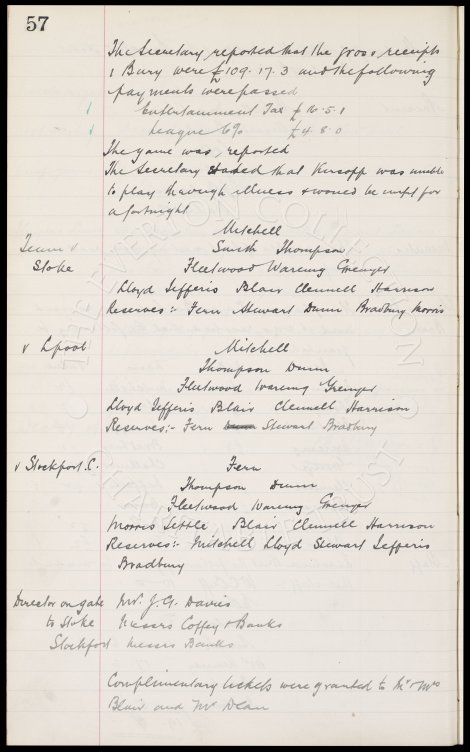 57
The Secretary reported that the gross receipts
v Bury were £109.17.3 and the following
payments were passed
Entertainment Tax £16.5.1
League 6% £4.8.0
The game was reported
The Secretary stated that Kirsopp was unable
to play through illness & would be unfit for
a fortnight
Mitchell
Team v Smith Thompson
Stoke Fleetwood Wareing Grenyer
Lloyd Jefferis Blair Clennell Harrison
Reserves:- Fern Stewart Dunn Bradbury Morris
v Lpool Mitchell
Thompson Dunn
Fleetwood Wareing Grenyer
Lloyd Jefferis Blair Clennell Harrison
Reserves:- Fern Stewart Bradbury
v Stockport. C. Fern
Thompson Dunn
Fleetwood Wareing Grenyer
Morris Settle Blair Clennell Harrison
Reserves:- Mitchell Lloyd Stewart Jefferis
Bradbury
Director on gate Mr. J. G. Davies
to Stoke Messrs Coffey & Banks
Stockport Messrs Banks
Complimentary tickets were granted to Mr & Mrs
Blair and Mr Dean
THE EVERTON COLLECTION
CHARITABLE TRUST